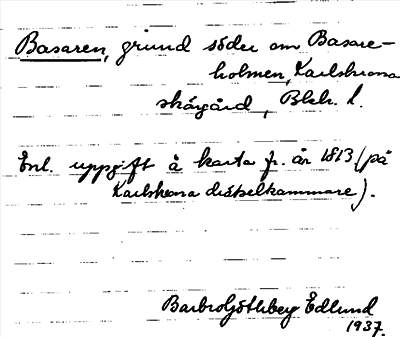 Basaren, grund söder om Basare-
holmen, Karlskrona
skärgård, Blek. l.
Enl. uppgift å karta fr. år 1813 (på
Karlskrona drätselkammare).
Barbro Götliberg Edlund
1937.